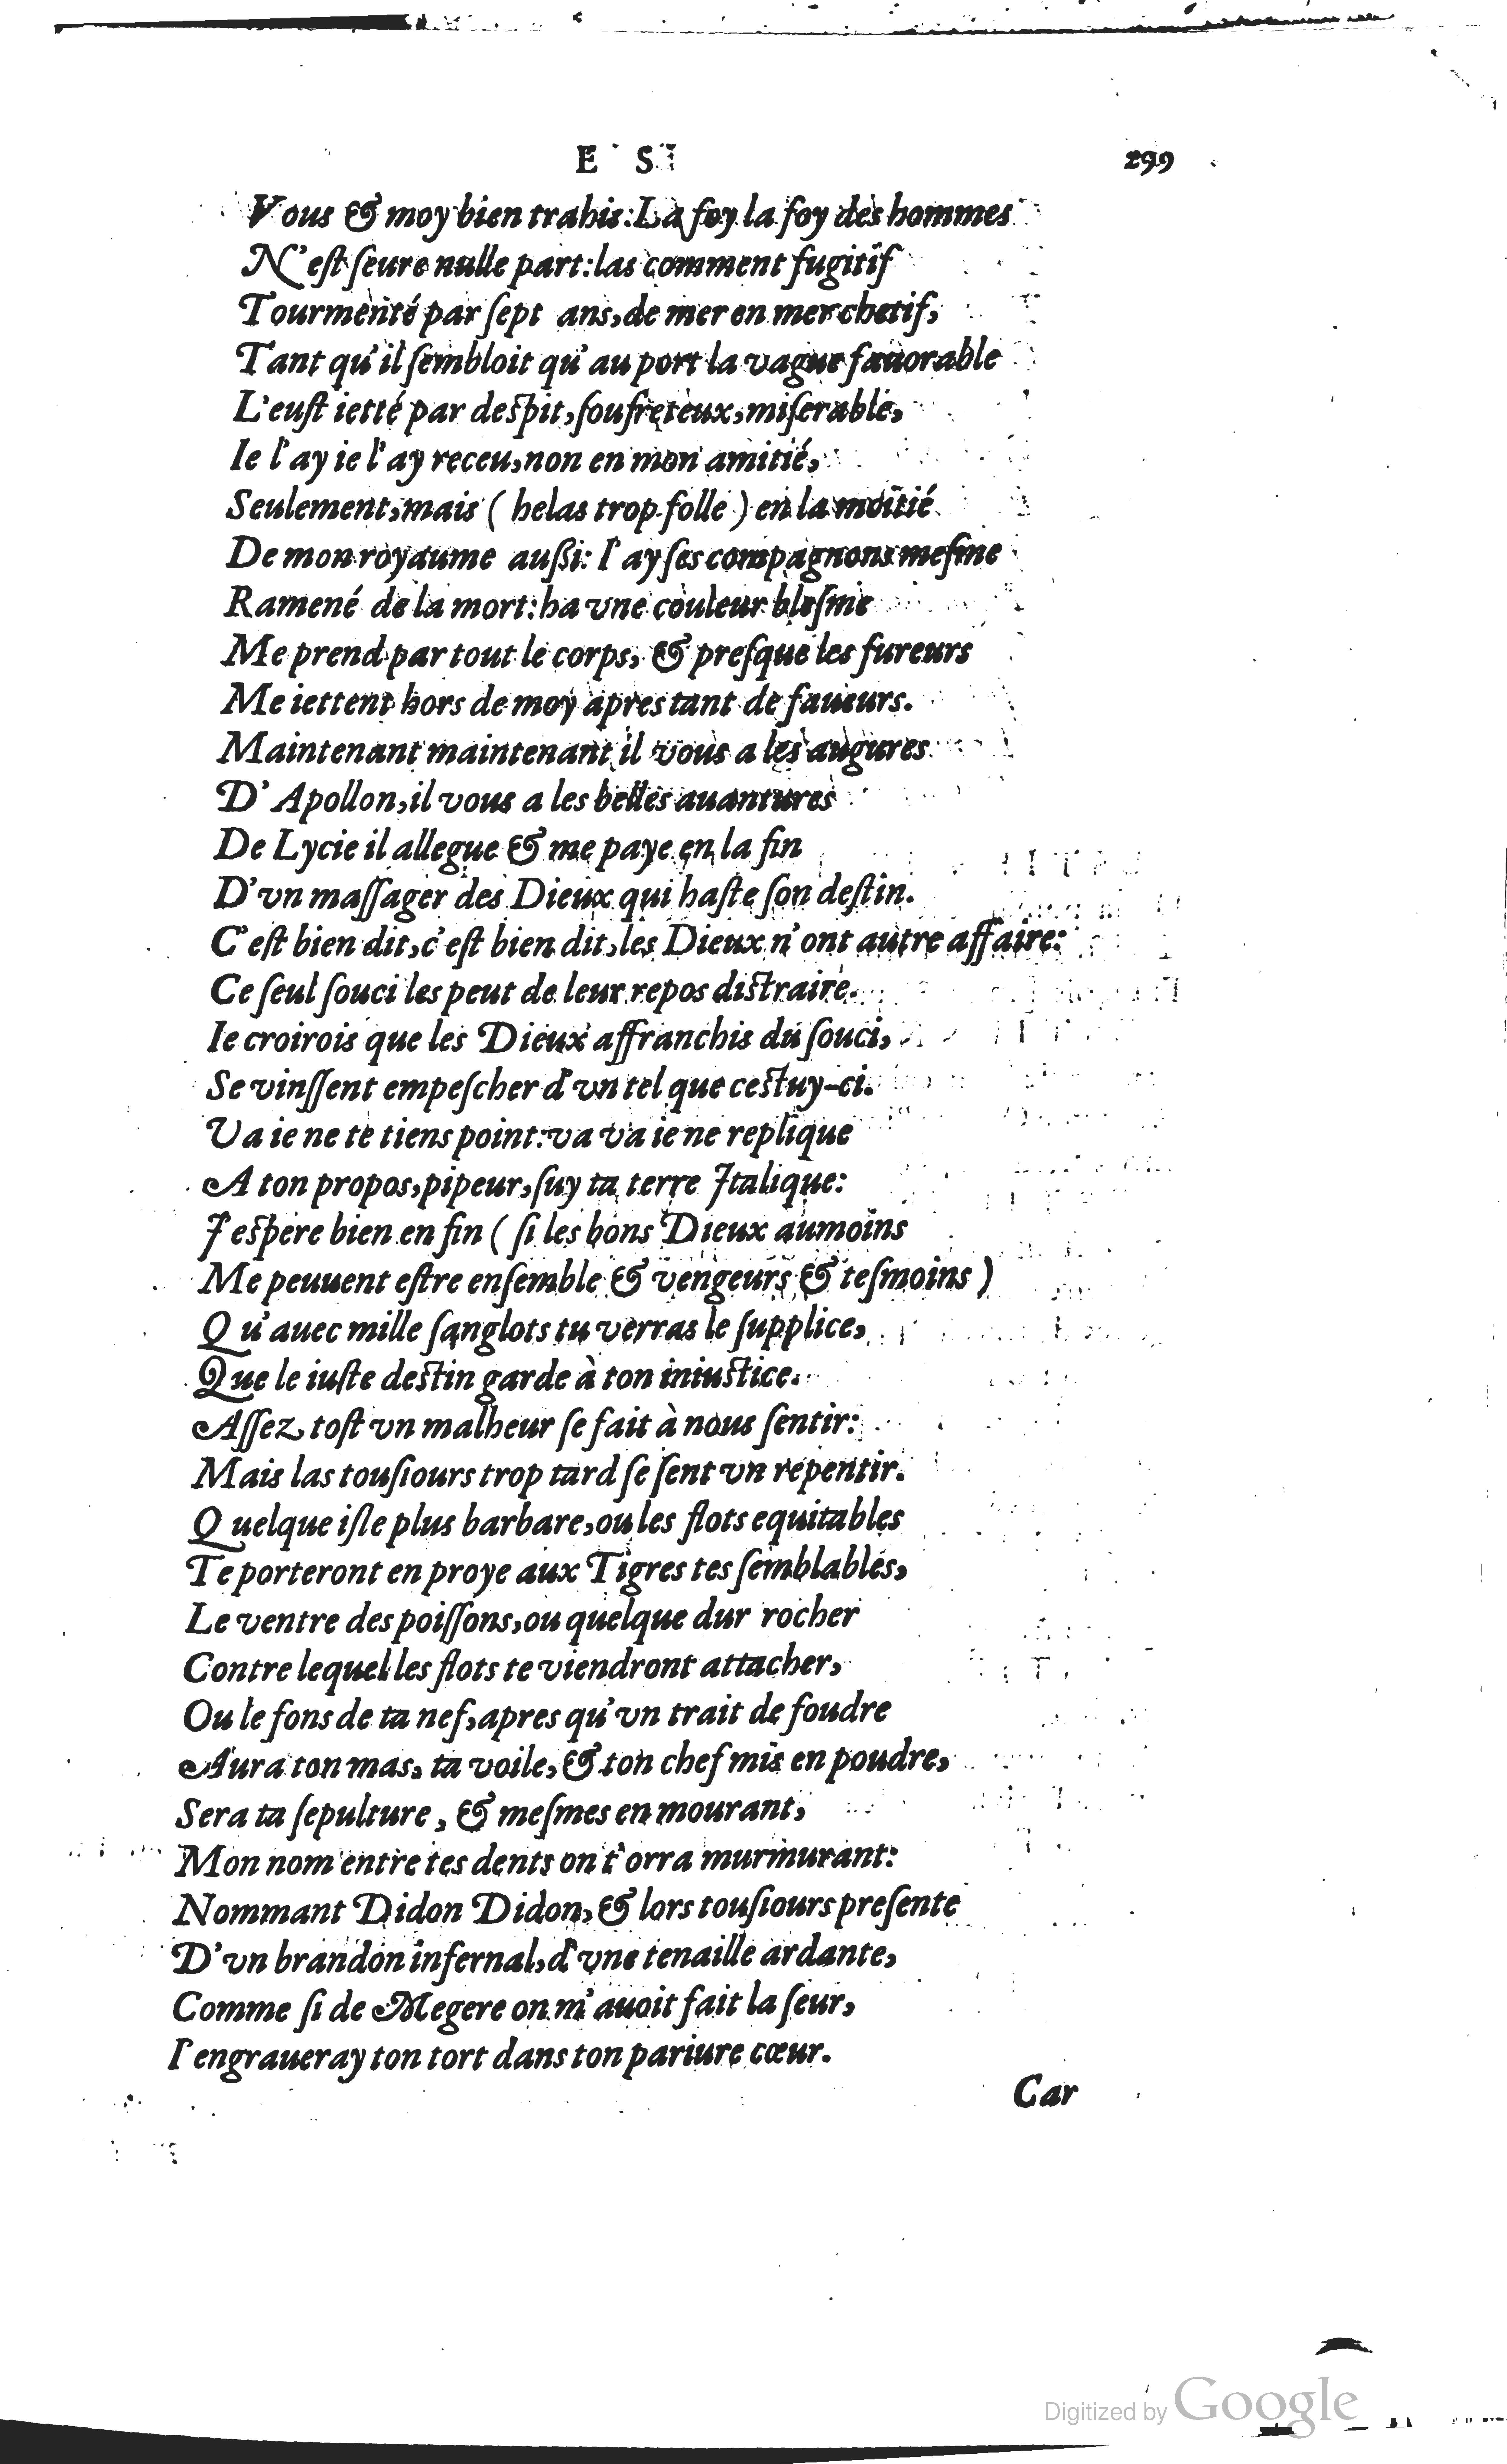 E S T 299
Vous & moy bien trahis: La foy la foy des hommes
N'est ſeure nulle part: las comment fugitif
Tourmenté par ſept ans, de mer en mer chetif,
Tant qu'il ſembloit qu'au port la vague fauorable
L'euſt ietté par deſpit, ſoufreteux, miſerable,
Ie l'ay ie l'ay receu, non en mon amitié,
Seulement, mais ( helas trop folle ) en la moitié
De mon royaume auſſi: I'ay ſes compagnons meſme
Ramené de la mort: ha vne couleur bleſme
Me prend par tout le corps, & preſque les fureurs
Me iettent hors de moy apres tant de faueurs.
Maintenant maintenant il vous a les augures
D'Apollon, il vous a les belles auantures
De Lycie il allegue & me paye en la fin
D'vn maſſager des Dieux qui haſte ſon deſtin.
C'eſt bien dit, c'eſt bien dit, les Dieux n'ont autre affaire:
Ce ſeul ſouci les peut de leur repos diſtraire.
Ie croirois que les Dieux affranchis du ſouci,
Se vinſſent empeſcher d'vn tel que ceſtuy-ci.
Va ie ne te tiens point: va va ie ne replique
A ton propos, pipeur, ſuy ta terre Italique:
I'eſpere bien en fin ( ſi les bons Dieux aumoins
Me peuuent eſtre enſemble & vengeurs & teſmoins )
Qu'auec mille ſanglots tu verras le ſupplice,
Que le iuſte deſtin garde à ton iniuſtice.
Aſſez toſt vn malheur ſe fait à nous ſentir:
Mais las touſiours trop tard ſe ſent vn repentir.
Quelque iſle plus barbare, ou les flots equitables
Te porteront en proye aux Tigres tes ſemblables,
Le ventre des poiſſons, ou quelque dur rocher
Contre lequel les flots te viendront attacher,
Ou le fons de ta nef, apres qu'vn trait de foudre
Aura ton mas, ta voile, & ton chef mis en poudre,
Sera ta ſepulture, & meſmes en mourant,
Mon nom entre tes dents on t'orra murmurant:
Nommant Didon Didon, & lors touſiours preſente
D'vn brandon infernal, d'vne tenaille ardante,
Comme ſi de Megere on m'auoit fait la ſeur,
I'engraueray ton tort dans ton pariure cœur.
Car
Digitized by Google